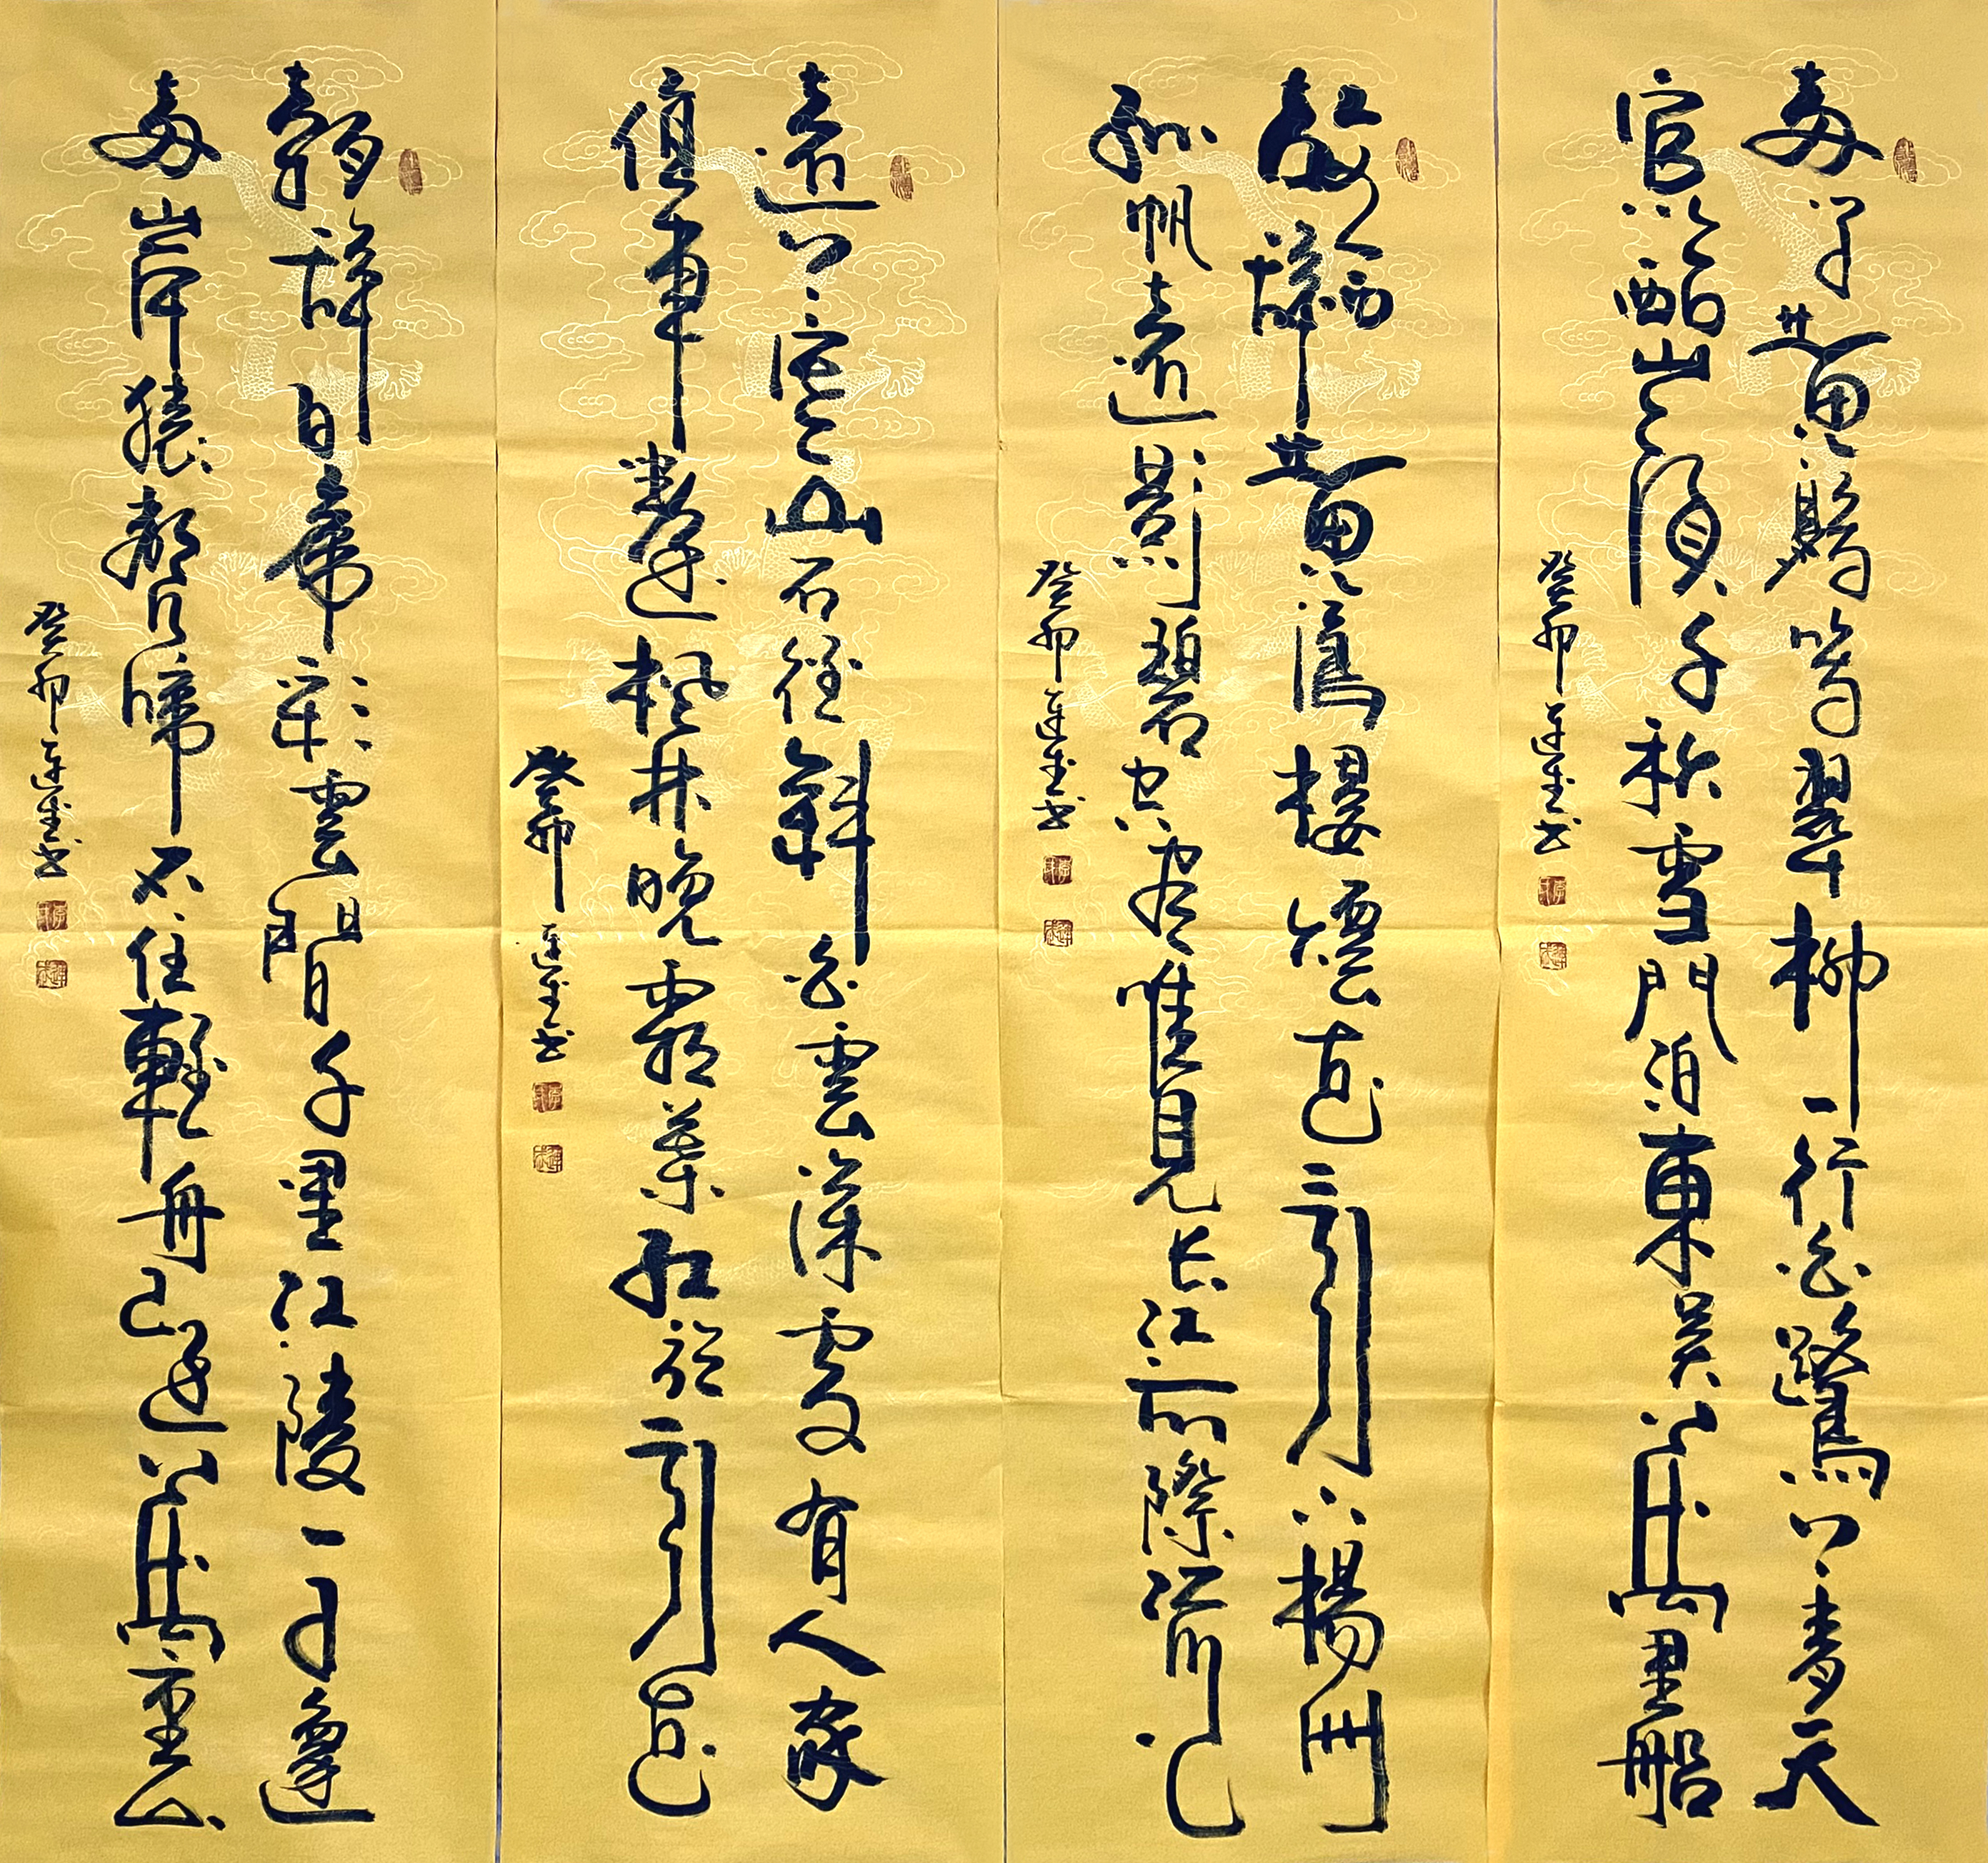 兩个黃鸝鳴翠柳一行白鷺上青天
窗含西嶺千秋雪門泊東吳萬里船
癸卯 書
故人西辭黃鶴樓煙花三月下揚州
孤帆遠影碧空盡唯見長江天際流
癸卯 書
遠上寒山石徑斜白雲深處有人家
停車坐愛楓林晚霜葉紅於二月花
癸卯 書
朝辭白帝彩雲間千里江陵一日還
兩岸猿聲啼不住輕舟已過萬重山
癸卯 書